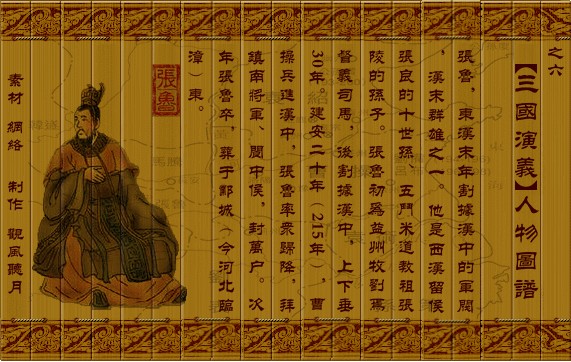 之六
【三國演義】人物圖譜
張魯，東漢末年割據漢中的軍閥
，漢末群雄之一。他是西漢留侯
張良的十世孫、五鬥米道教祖張
陵的孫子。張魯初爲益州牧劉焉
督義司馬，後割據漢中，上下垂
30年。建安二十年（215年），曹
操兵進漢中，張魯率衆歸降，拜
鎮南將軍、閬中侯，封萬户。次
年張魯卒，葬于鄴城（今河北臨
漳）東。
張魯
素材 網絡 制作 觀風聽月